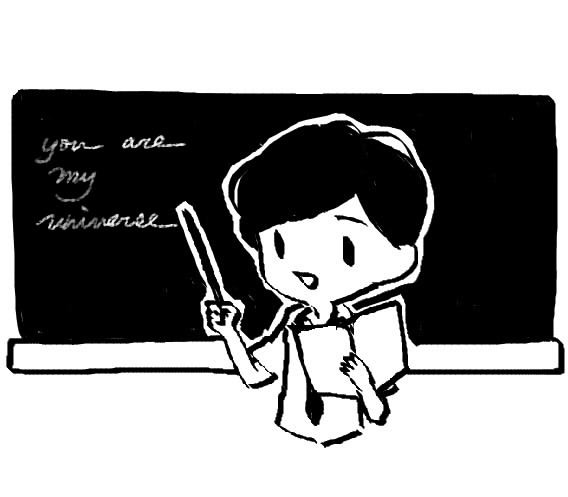 you are
my
universe